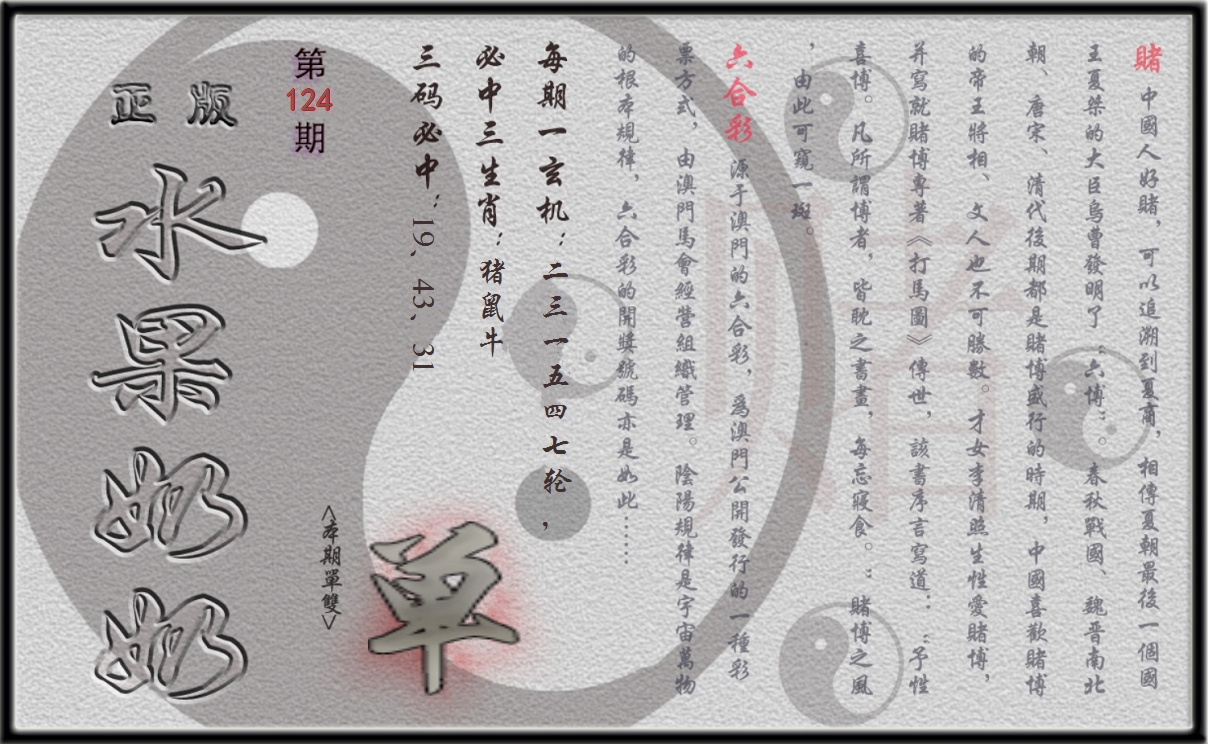 賭 中國人好賭，可以追溯到夏商，相傳夏朝最後一個國
王夏桀的大臣烏曹發明了“六博”。春秋戰國、魏晋南北
朝、唐宋、清代後期都是賭博盛行的時期，中國喜歡賭博
的帝王將相、文人也不可勝數。才女李清照生性愛賭博，
并寫就賭博專著《打馬圖》傳世，該書序言寫道：“予性
喜博。凡所謂博者，皆耽之書畫，每忘寢食。：賭博之風
，由此可窺一斑。
六合彩 源于澳門的六合彩，爲澳門公開發行的一種彩
票方式，由澳門馬會經營組織管理。陰陽規律是宇宙萬物
的根本規律，六合彩的開獎號碼亦是如此……
每期一玄机：二三一五四七轮，
必中三生肖：猪鼠牛
三码必中：19、43、31
第124期
<本期單雙>
单
正版
水果奶奶
赌